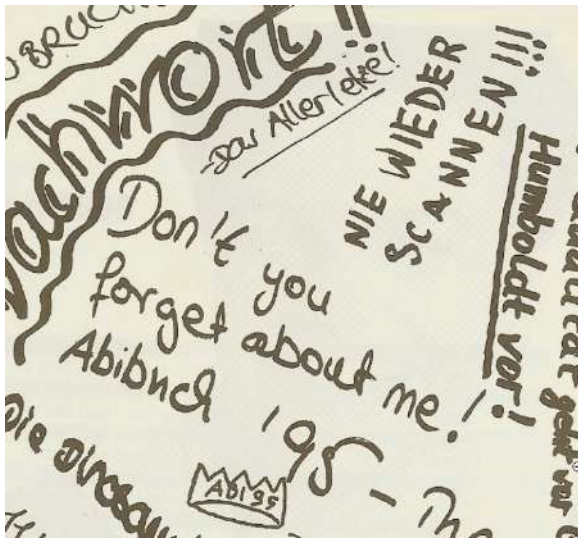 BRUCH
Nachwort!!
-Das Allerletzte!
NIE WIEDER
SCANNEN!!!
Humboldt vor!
geht vor
Don't you
forget about me!
Abibuch '95 - The
Abi 95
Die Dinosau